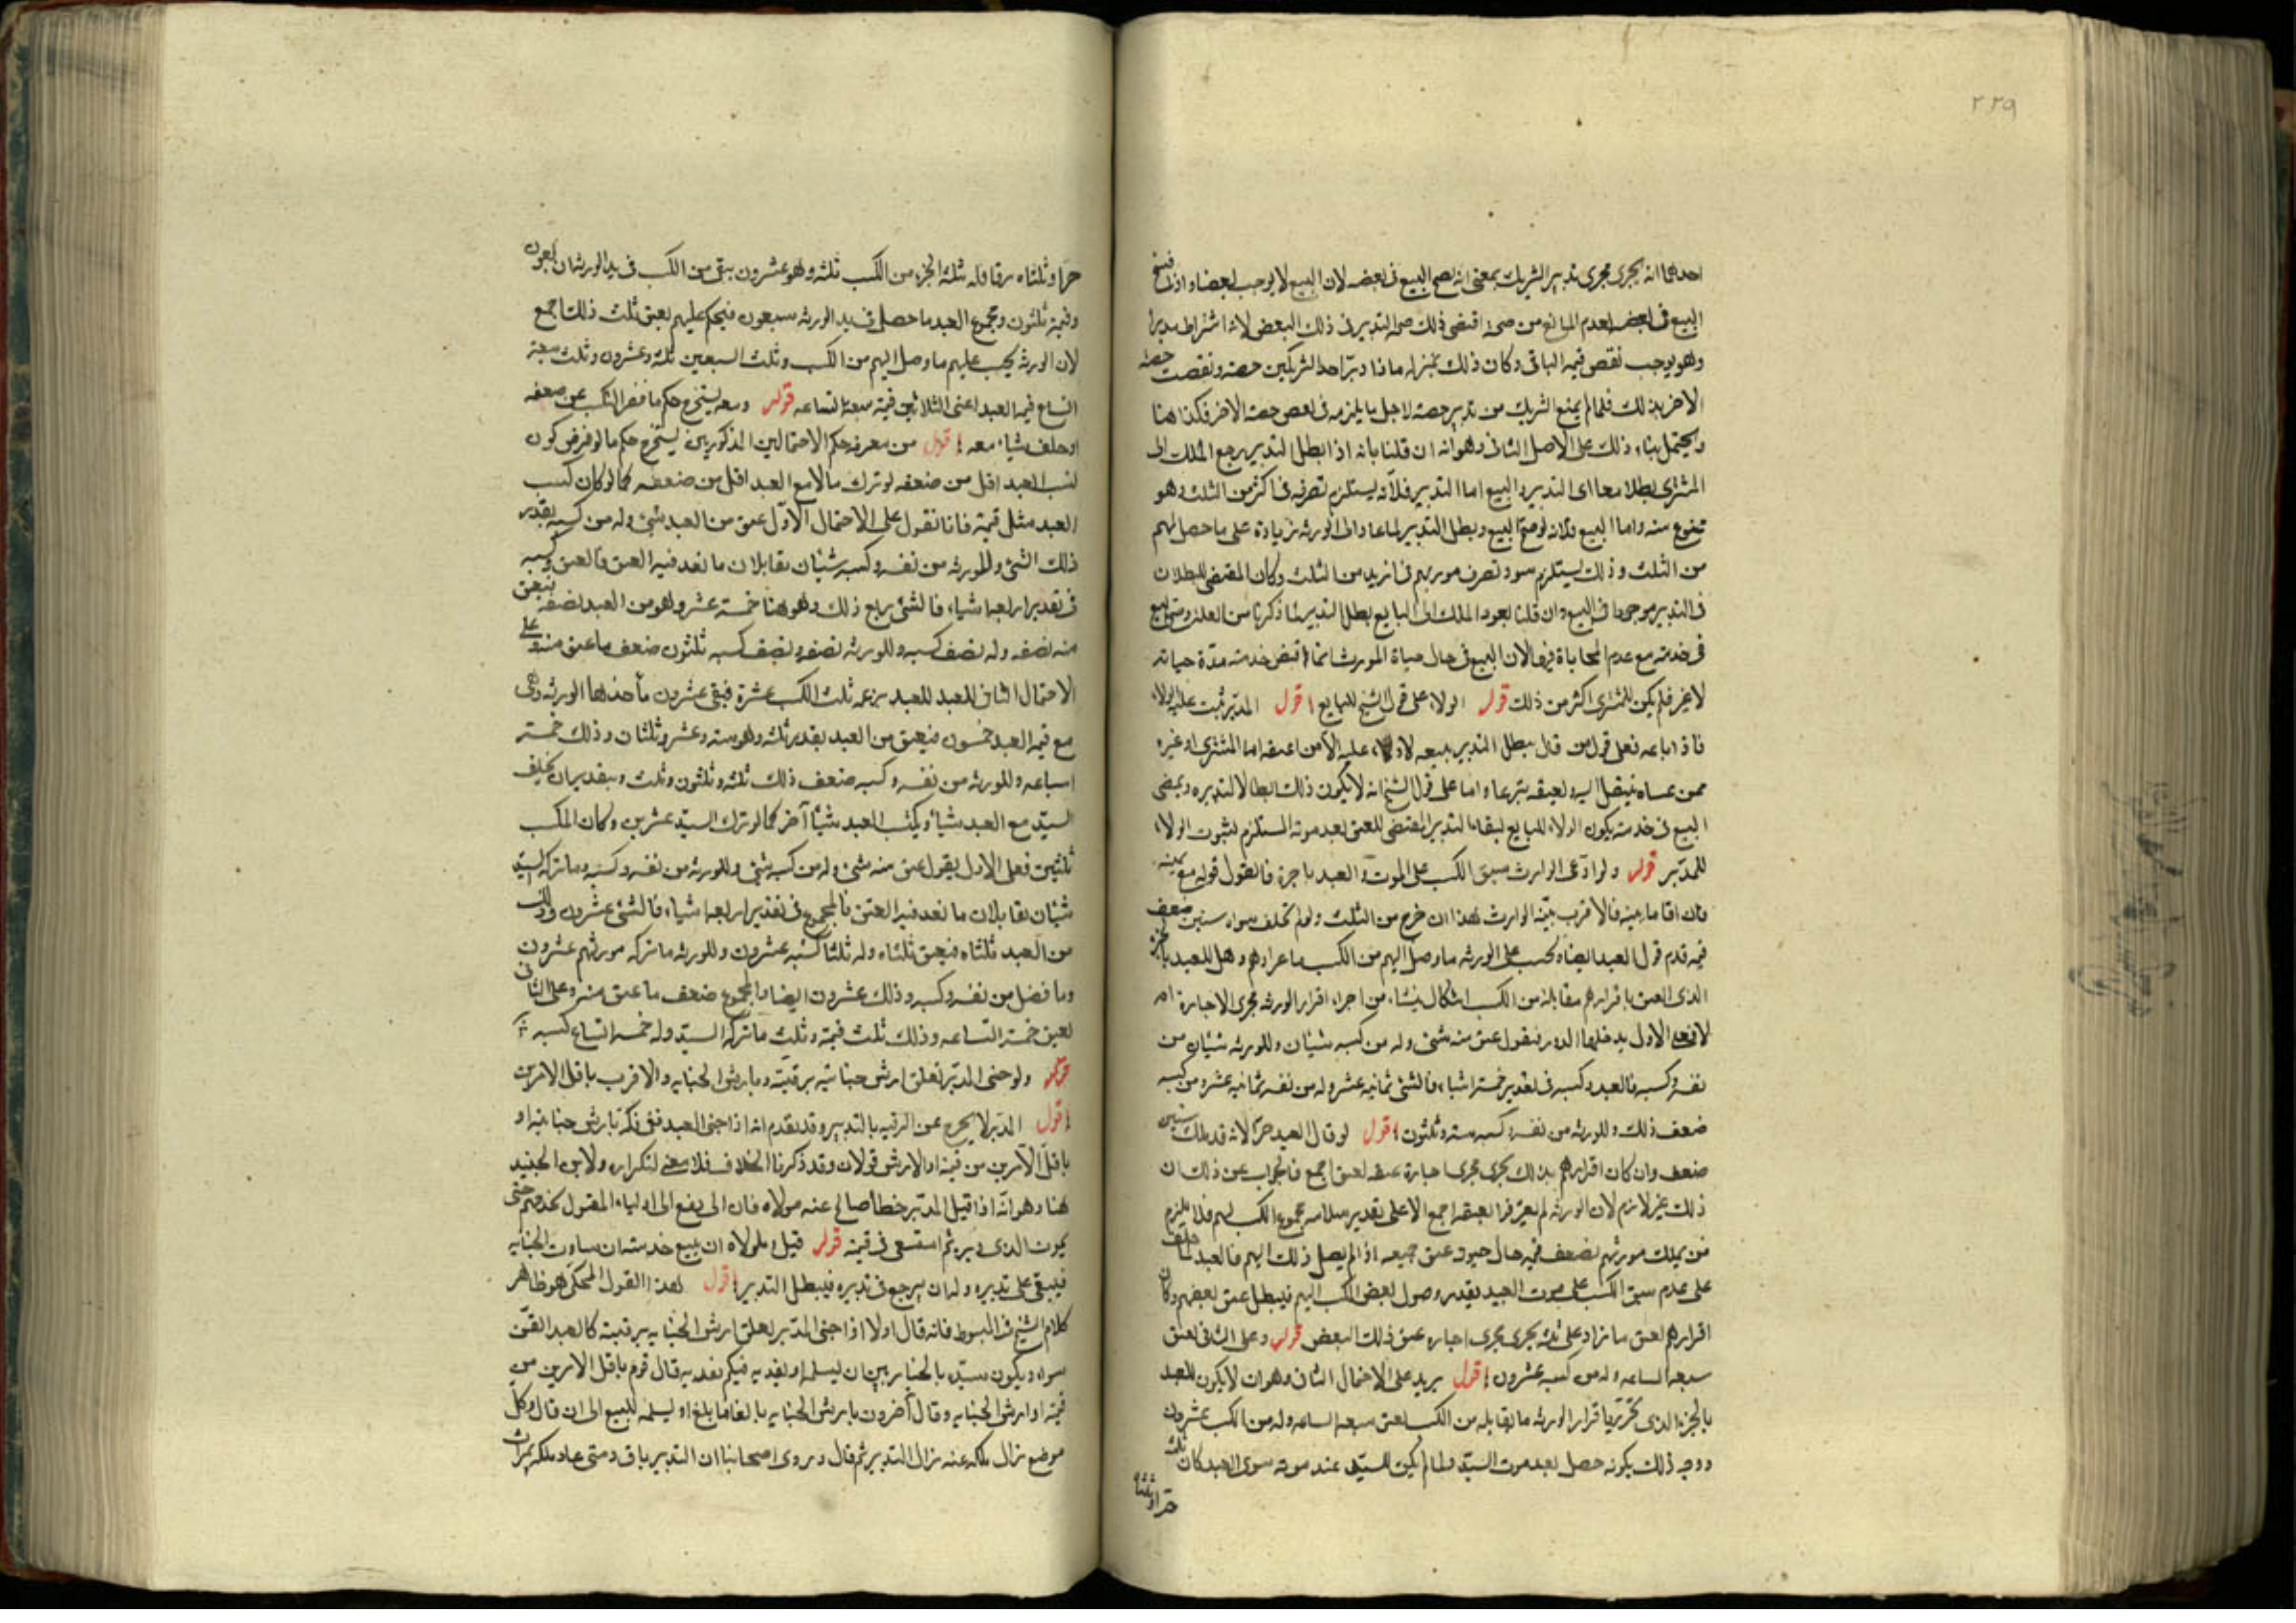 ٢٢٩
احدهما انه يجرى مجرى تدبير الشريك بمعنى انه يصح البيع فى بعضه لان البيع لا يوجب بعضا واذا فسخ
البيع فى بعضه لعدم المانع من صحة اقتضى ذلك صحة التدبير فى ذلك البعض لانه اشتراط مدبرا
وهو يوجب نقص قيمة الباقى وكان ذلك بمنزلة ما اذا دبر احد الشريكين حصته ونقصت حصة
الاخر بذلك فلما لم يمنع الشريك من تدبير حصته لاجل ما يلزمه فى بعض حصة الاخر فكذا هنا
ويحتمل بناء ذلك على الاصل الثانى وهو انه ان قلنا بانه اذا بطل التدبير يرجع الملك الى
المشترى بطلا معا اى التدبير والبيع اما التدبير فلانه يستلزم تصرفه فى اكثر من الثلث وهو
ممنوع منه واما البيع فلانه لو صح البيع وبطل التدبير لما عاد الى الورثة زيادة على ما حصل لهم
من الثلث وذلك يستلزم نفوذ تصرف مورثهم فى ازيد من الثلث وكان المقتضى للبطلان
فى التدبير موجودا فى البيع وان قلنا بعود الملك الى البايع بطل التدبير لما ذكرنا من العلة وصح البيع
فى خدمته مع عدم المحاباة فيها لان البيع فى حال حياة المورث انما اقتضى خدمته مدة حياته
لا غير فلم يكن للمشترى اكثر من ذلك قوله الولاء على قول الشيخ للبايع اقول المدبر ثبت عليه الولاء
فاذا باعه فعلى قول من قال يبطل التدبير ببيعه لا ولاء عليه الا من اعتقه اما المشترى او غيره
ممن عساه ينتقل اليه ويعتقه تبرعا واما على قول الشيخ انه لا يكون ذلك ابطالا لتدبيره ويمضى
البيع فى خدمته يكون الولاء للبايع لبقاء التدبير المقتضى للعتق بعد موته المستلزم لثبوت الولاء
للمدبر قوله ولو ادعى الوارث سبق الكسب على الموت والعبد تاخره فالقول قوله مع يمينه
فان اقاما بينة فالاقرب بينة الوارث هذا ان خرج من الثلث ولو لم يخلف سواه ستين ضعف
قيمته قدم قول العبد ايضا ويحسب على الورثة ما وصل اليهم من الكسب ما عدا دهم وهل للعبد بالجزء
الذى انعتق باقرارهم مقابله من الكسب اشكال ينشاء من اجراء اقرار الورثة مجرى الاجازة ام
لا فعلى الاول يدخلها الدور فنقول عتق منه شئ وله من كسبه شيئان وللورثة شيئان من
نفسه وكسبه فالعبد وكسبه فى تقدير خمسة اشياء فالشئ ثمانية عشر وله من نفسه ثمانية عشر ومن كسبه
ضعف ذلك وللورثة من نفسه وكسبه ستة وثلثون اقول لو قال العبد حر لانه قد ملك ستين
ضعف وان كان اقرارهم بذلك يجرى مجرى اجازة عتقه لعتق اجمع فالجواب عن ذلك ان
ذلك غير لازم لان الورثة لم يعترفوا بعتقه اجمع الا على تقدير سلامة مجموع الكسب لهم فلا يلزم
من يملك مورثهم لضعف قيمته حال حيوته عتق جميعه اذا لم يصل ذلك اليهم فالعبد لما حلف
على عدم سبق الكسب على موت السيد بقدر وصول بعض الكسب اليهم فيبطل عتق بعضهم وكان
اقرارهم بعتق ما زاد على ثلثه يجرى مجرى اجازة عتق ذلك البعض قوله وعلى الثانى يعتق
سبعة اتساعه وله من كسبه عشرون اقول يريد على الاحتمال الثانى وهو ان لا يكون للعبد
بالجزء الذى تحرر باقرار الورثة ما يقابله من الكسب يعتق سبعة اتساعه وله من الكسب عشرون
ووجه ذلك بكونه حصل بعد موت السيد ولما لم يكن للسيد عند موته سوى العبد كان ثلثه
حرا وثلثاه
حرا وثلثاه رقا فله بثلثه الحر من الكسب ثلثه وهو عشرون يبقى من الكسب فى يد الورثة اربعون
وقيمته ثلثون ومجموع العبد ما حصل فى يد الورثة سبعون فيحكم عليهم بعتق ثلث ذلك اجمع
لان الورثة يحسب عليهم ما وصل اليهم من الكسب وثلث السبعين ثلثة وعشرون وثلث سبعة
اتساع قيمة العبد اعنى الثلاثين قيمة سبعة اتساعه قوله ومنه يستخرج حكم ما قصر الكسب عن ضعفه
او خلف شيئا معه اقول من معرفة حكم الاحتمالين المذكورين يستخرج حكم ما لو فرض كون
كسب العبد اقل من ضعفه او ترك مالا مع العبد اقل من ضعفه كما لو كان كسب
العبد مثل قيمته فانا نقول على الاحتمال الاول عتق من العبد شئ وله من كسبه بقدر
ذلك الشئ وللورثة من نفسه وكسبه شيئان يقابلان ما نفذ فيه العتق فالعتق وكسبه
فى تقدير اربعة اشياء فالشئ ربع ذلك وهو هنا خمسة عشر وهو من العبد نصفه فينعتق
منه نصفه وله نصف كسبه وللورثة نصفه ونصف كسبه ثلثون ضعف ما عتق منه وعلى
الاحتمال الثانى للعبد بزعمه ثلث الكسب عشرة فيبقى عشرون ياخذها الورثة وهى
مع قيمة العبد خمسون فيعتق من العبد بقدر ثلثه وهو ستة وعشر وثلثان وذلك خمسة
اتساعه وللورثة من نفسه وكسبه ضعف ذلك ثلثة وثلثون وثلث وبتقدير ان يخلف
السيد مع العبد شيئا ويكتسب العبد شيئا آخر كما لو ترك السيد عشرين وكان المكسب
ثلثين فعلى الاول يقول عتق منه شئ وله من كسبه شئ وللورثة من نفسه وكسبه وما تركه السيد
شيئان يقابلان ما نفذ فيه العتق فالمجموع فى تقدير اربعة اشياء فالشئ عشرون وذلك
من العبد ثلثاه فينعتق ثلثاه وله ثلثا كسبه عشرون وللورثة ما تركه مورثهم عشرون
وما فضل من نفسه وكسبه وذلك عشرون ايضا فالمجموع ضعف ما عتق منه وعلى الثانى
يعتق خمسة اتساعه وذلك ثلث قيمته وثلث ما تركه السيد وله خمسة اتساع كسبه
قوله ولو جنى المدبر تعلق ارش جنايته برقبته وبارش الجناية والاقرب باقل الامرين
اقول المدبر لا يخرج عن الرقية بالتدبير وقد تقدم انه اذا جنى العبد ففى فكه بارش جنايته او
باقل الامرين من قيمته او الارش قولان وقد ذكرنا الخلاف فلا معنى لتكراره ولابن الجنيد
هنا وهو انه اذا قتل المدبر خطأ صالح عنه مولاه فان ابى دفع الى اولياء المقتول يخدمهم حتى
يموت الذى دبره ثم استسعى فى قيمته قوله قيل ولمولاه ان يبيع خدمته ان ساوت الجناية
فيبقى على تدبيره وله ان يرجع فى تدبيره فيبطل التدبير اقول هذا القول المحكى هو ظاهر
كلام الشيخ فى المبسوط فانه قال اولا اذا جنى المدبر تعلق ارش الجناية برقبته كالعبد القن
سواء ويكون سيده بالخيار بين ان يسلمه او يفديه فبكم يفديه قال قوم باقل الامرين من
قيمته او ارش الجناية وقال آخرون بارش الجناية بالغا ما بلغ او ليسلمه للبيع الى ان قال وكل
موضع زال ملكه عنه زال التدبير ثم قال وروى اصحابنا ان التدبير باق ومتى عاد ملكه بميراث